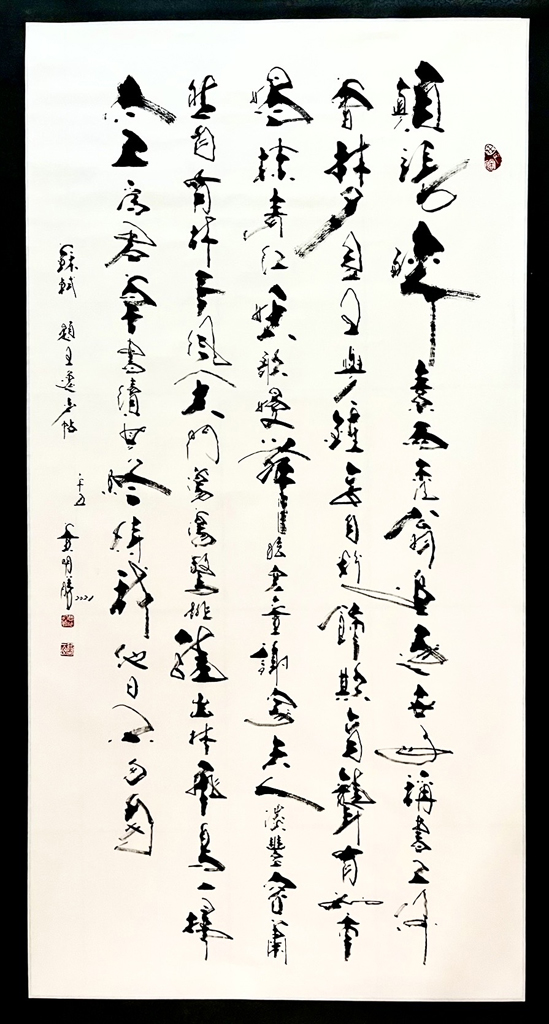 顛張醉素兩禿翁追逐世好稱書工何
曾夢見王與鍾妄自粉飾欺盲聾有如市
倡抹青紅妖歌嫚舞眩兒童謝家夫人淡豐容蕭
然自有林下風天門蕩蕩驚跳龍出林飛鳥一掃
空為君草書續其終待我他日不匆匆
蘇軾 題王逸少帖 明 2021